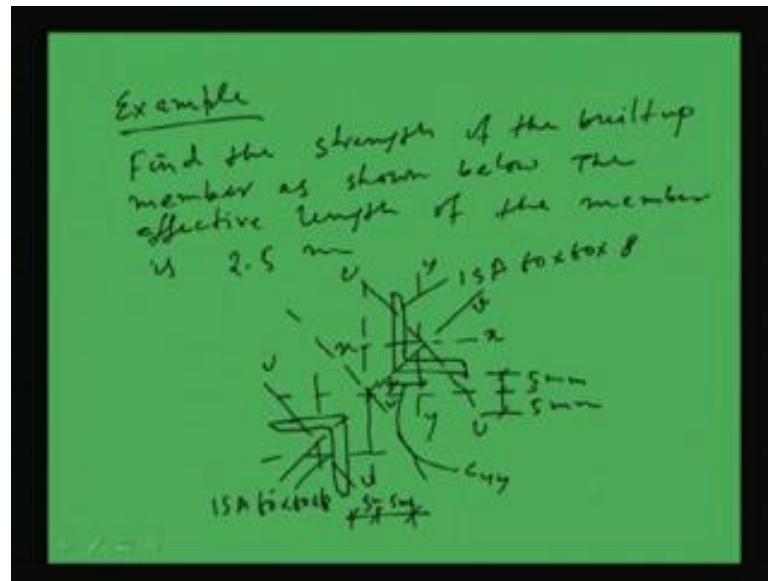 Example
Find the strength of the built up
member as shown below The
effective length of the member
is 2.5 m
U
y
ISA 60x60x8
v
x
x
5mm
5mm
U
v
y
U
v
U
Cyy
ISA 60x60x8
5m 5m